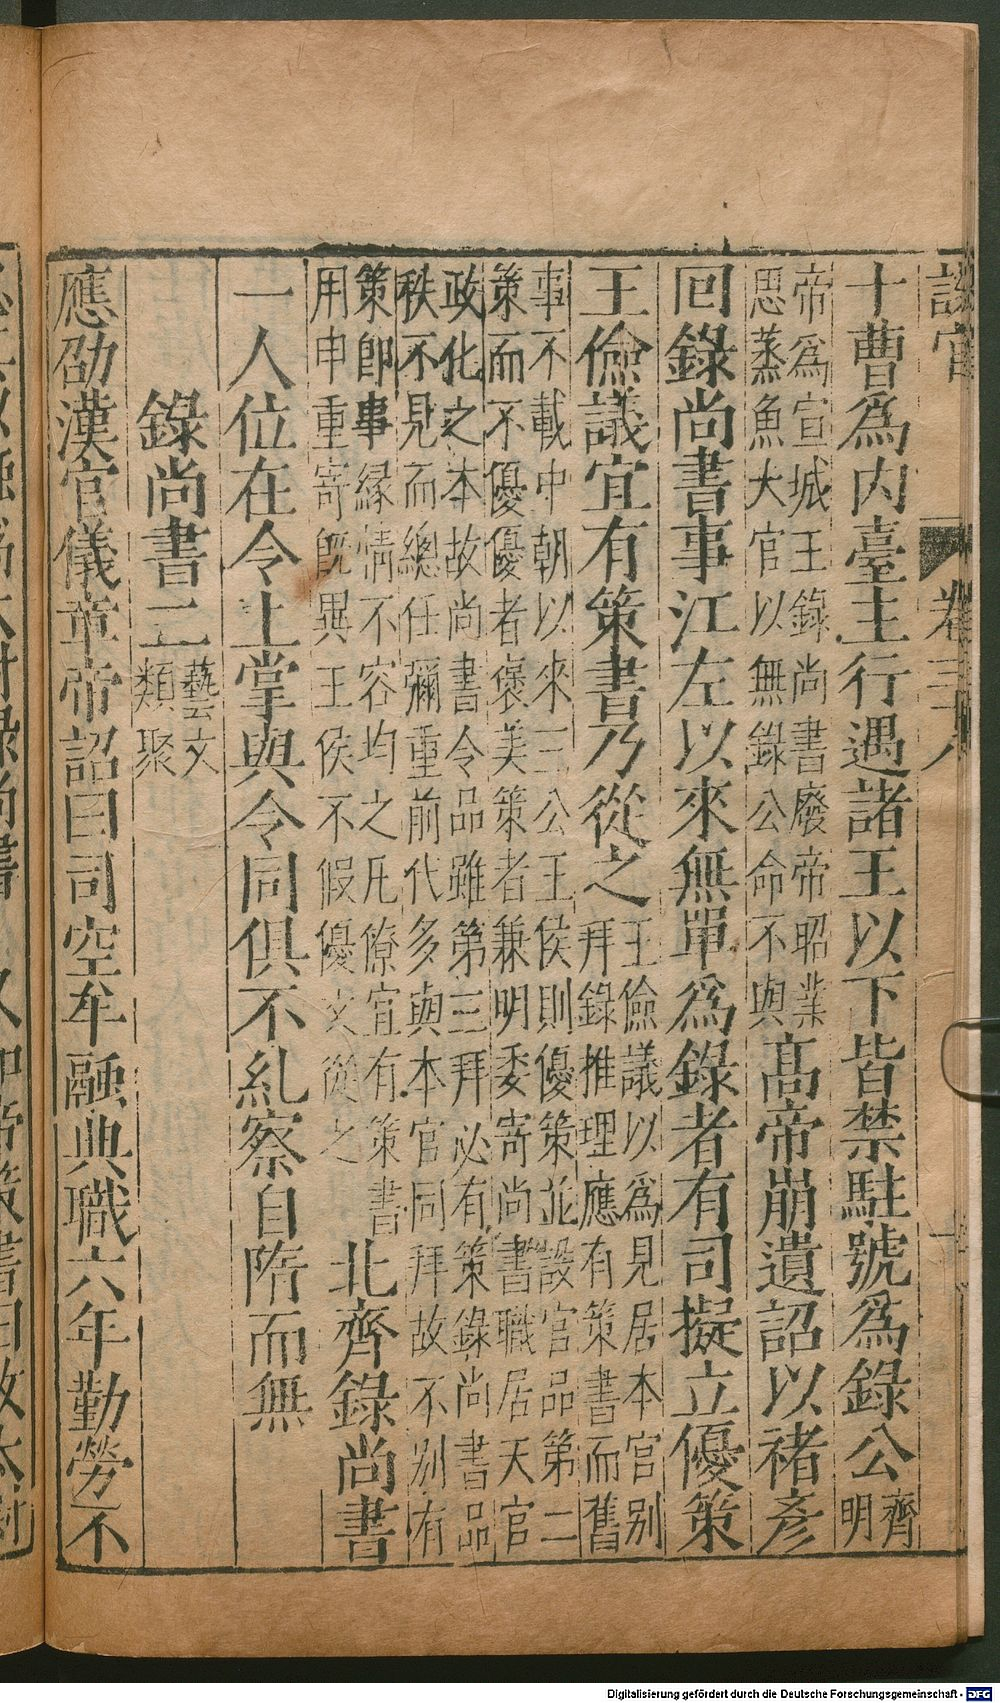 設官　卷三十八　十
十曹爲内臺主行遇諸王以下皆禁駐號爲錄公齊明
帝爲宣城王錄尚書廢帝昭業
思蒸魚大官以無錄公命不與高帝崩遺詔以褚彥
回錄尚書事江左以來無單爲錄者有司擬立優策
王儉議宜有策書乃從之王儉議以爲見居本官别
拜錄推理應有策書而舊
事不載中朝以來三公王侯則優策並設官品第二
策而不優優者褒美策者兼明委寄尚書職居天官
政化之本故尚書令品雖第三拜必有策錄尚書品
秩不見而總任彌重前代多與本官同拜故不别有
策卽事緣情不容均之凡僚宜有策書
用申重寄旣異王侯不假優文從之北齊錄尚書
一人位在令上掌與令同俱不糺察自隋而無
錄尚書二藝文
類聚
應劭漢官儀章帝詔曰司空牟融典職六年勤勞不